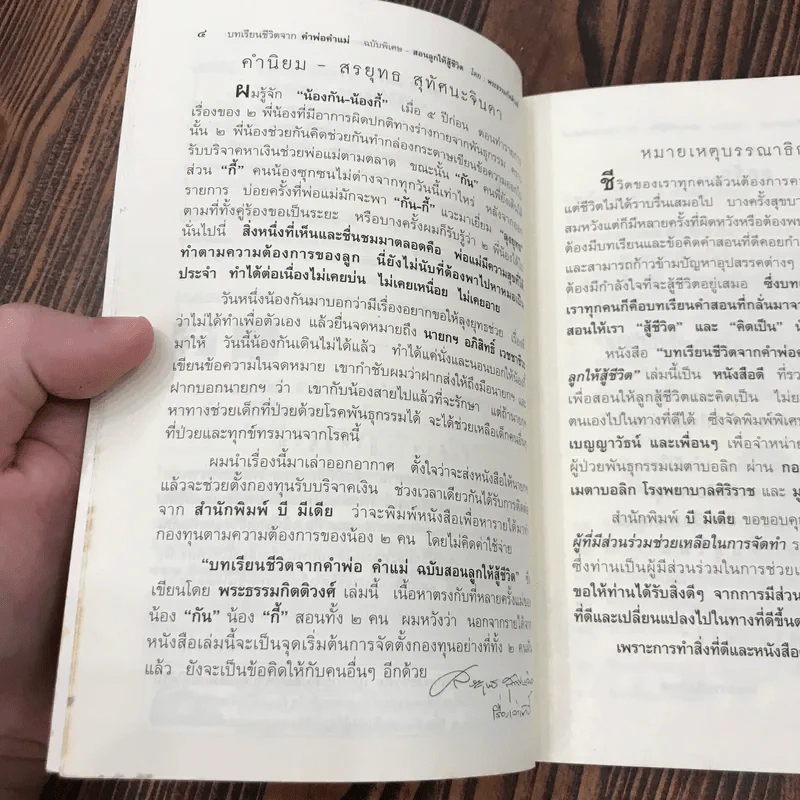 ๔ บทเรียนชีวิตจาก คำพ่อคำแม่ ฉบับพิเศษ - สอนลูกให้สู้ชีวิต โดย
คำนิยม - สรยุทธ สุทัศนะจินดา
ผมรู้จัก “น้องกัน-น้องกี้” เมื่อ ๕ ปีก่อน ตอนทำรายการ
เรื่องของ ๒ พี่น้องที่มีอาการผิดปกติทางร่างกายจากพันธุกรรม
นั้น ๒ พี่น้องช่วยกันคิดช่วยกันทำกล่องกระดาษเขียนข้อความ
รับบริจาคหาเงินช่วยพ่อแม่ตามตลาด ขณะนั้น “กัน” คนพี่ยังเดินได้
ส่วน “กี้” คนน้องซุกซนไม่ต่างจากทุกวันนี้เท่าไหร่ หลังจาก
รายการ บ่อยครั้งที่พ่อแม่มักจะพา “กัน-กี้” แวะมาเยี่ยม “ลุงยุทธ”
ตามที่ทั้งคู่ร้องขอเป็นระยะ หรือบางครั้งผมก็รับรู้ว่า ๒ พี่น้อง
นั่นไปนี่ สิ่งหนึ่งที่เห็นและชื่นชมมาตลอดคือ พ่อแม่มีความสุขที่ได้
ทำตามความต้องการของลูก นี่ยังไม่นับที่ต้องพาไปหาหมอเป็น
ประจำ ทำได้ต่อเนื่องไม่เคยบ่น ไม่เคยเหนื่อย ไม่เคยอาย
วันหนึ่งน้องกันมาบอกว่ามีเรื่องอยากขอให้ลุงยุทธช่วย
ว่าไม่ได้ทำเพื่อตัวเอง แล้วยื่นจดหมายถึง นายกฯ อภิสิทธิ์ เวชชาชีวะ
มาให้ วันนี้น้องกันเดินไม่ได้แล้ว ทำได้แค่นั่งและนอนบอกให้น้อง
เขียนข้อความในจดหมาย เขากำชับผมว่าฝากส่งให้ถึงมือนายกฯ
ฝากบอกนายกฯ ว่า เขากับน้องสายไปแล้วที่จะรักษา แต่ถ้านายกฯ
หาทางช่วยเด็กที่ป่วยด้วยโรคพันธุกรรมได้ จะได้ช่วยเหลือเด็กคนอื่นๆ
ที่ป่วยและทุกข์ทรมานจากโรคนี้
ผมนำเรื่องนี้มาเล่าออกอากาศ ตั้งใจว่าจะส่งหนังสือให้นายกฯ
แล้วจะช่วยตั้งกองทุนรับบริจาคเงิน ช่วงเวลาเดียวกันได้รับการติดต่อ
จาก สำนักพิมพ์ บี มีเดีย ว่าจะพิมพ์หนังสือเพื่อหารายได้
กองทุนตามความต้องการของน้อง ๒ คน โดยไม่คิดค่าใช้จ่าย
“บทเรียนชีวิตจากคำพ่อ คำแม่ ฉบับสอนลูกให้สู้ชีวิต”
เขียนโดย พระธรรมกิตติวงศ์ เล่มนี้ เนื้อหาตรงกับที่หลายครั้ง
น้อง “กัน” น้อง “กี้” สอนทั้ง ๒ คน ผมหวังว่า นอกจากรายได้จาก
หนังสือเล่มนี้จะเป็นจุดเริ่มต้นการจัดตั้งกองทุนอย่างที่ทั้ง ๒ คน
แล้ว ยังจะเป็นข้อคิดให้กับคนอื่นๆ อีกด้วย
หมายเหตุบรรณาธิ
ชีวิตของเราทุกคนล้วนต้องการ
แต่ชีวิตไม่ได้ราบรื่นเสมอไป บางครั้งสุข
สมหวังแต่ก็มีหลายครั้งที่ผิดหวังหรือ
ต้องมีบทเรียนและข้อคิดคำสอนที่ดีคอย
และสามารถก้าวข้ามปัญหาอุปสรรคต่างๆ
ต้องมีกำลังใจที่จะสู้ชีวิตอยู่เสมอ ซึ่ง
เราทุกคนก็คือบทเรียนคำสอนที่กลั่นมา
สอนให้เรา “สู้ชีวิต” และ “คิดเป็น”
หนังสือ “บทเรียนชีวิตจากคำพ่อ
ลูกให้สู้ชีวิต” เล่มนี้เป็น หนังสือดี ที่
เพื่อสอนให้ลูกสู้ชีวิตและคิดเป็น
ตนเองไปในทางที่ดีได้ ซึ่งจัดพิมพ์พิเศษ
เบญญาวัธน์ และเพื่อนๆ เพื่อจำหน่าย
ผู้ป่วยพันธุกรรมเมตาบอลิก ผ่าน
เมตาบอลิก โรงพยาบาลศิริราช และ
สำนักพิมพ์ บี มีเดีย ขอขอบคุณ
ผู้ที่มีส่วนร่วมช่วยเหลือในการจัดทำ
ซึ่งท่านเป็นผู้มีส่วนร่วมในการช่วย
ขอให้ท่านได้รับสิ่งดีๆ จากการมีส่วน
ที่ดีและเปลี่ยนแปลงไปในทางที่ดีขึ้น
เพราะการทำสิ่งที่ดีและหนังสือ